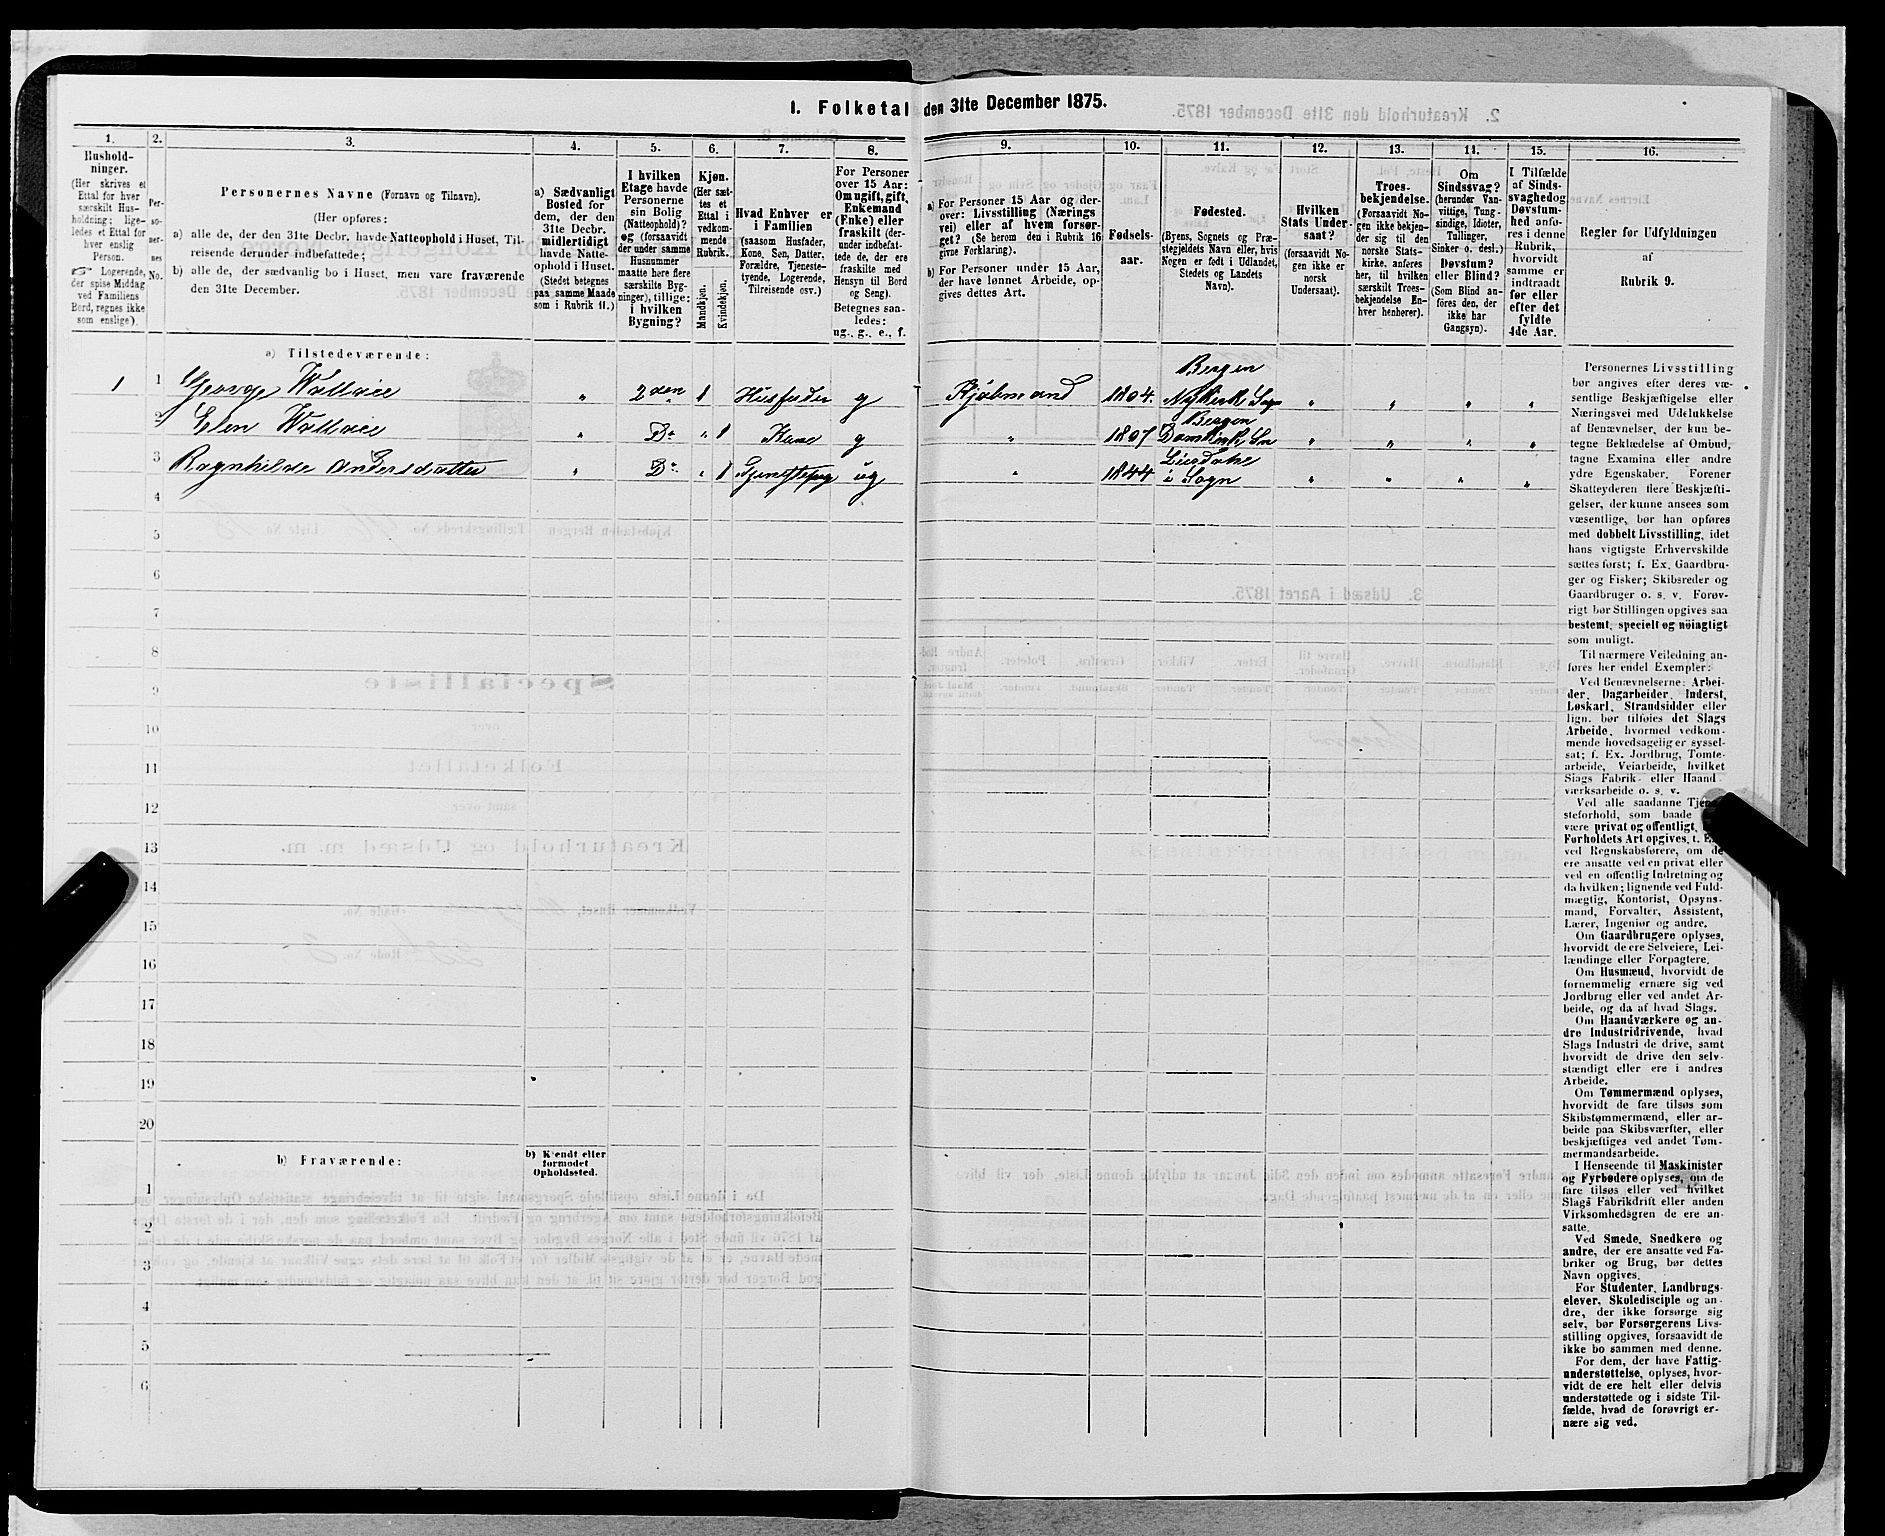 1. Folketal den 31te December 1875.
1.
Hushold-
ninger.
(Her skrives et
Ettal for hver
særskilt Hus-
holdning; lige-
ledes et Ettal for
hver enslig
Person.
☞ Logerende,
der spise Middag
ved Familiens
Bord, regnes ikke
som enslige).
2.
Per-
so-
ner-
nes
No.
3.
Personernes Navne (Fornavn og Tilnavn).
(Her opføres:
a) alle de, der den 31te Decbr. havde Natteophold i Huset, Til-
reisende derunder indbefattede;
b) alle de, der sædvanlig bo i Huset, men vare fraværende
den 31te December.
4.
a) Sædvanligt
Bosted for
dem, der den
31te Decbr.
midlertidigt
havde Natte-
ophold i Huset.
(Stedet betegnes
paa samme Maade
som i Rubrik 11.)
5.
I hvilken
Etage havde
Personerne
sin Bolig
(Natteophold)?
og (forsaavidt
der under samme
Husnummer
maatte here flere
særskilte Byg-
ninger), tillige:
i hvilken
Bygning?
6.
Kjøn.
(Her sæt-
tes et
Ettal i
vedkom-
mende
Rubrik.
Mandkjøn.
Kvindekjøn.
7.
Hvad Enhver er
i Familien
(saasom Husfader,
Kone, Søn, Datter,
Forældre, Tjeneste-
tyende, Logerende,
Tilreisende osv.)
8.
For Personer
over 15 Aar:
Om ugift, gift,
Enkemand
(Enke) eller
fraskilt (der-
under indbefat-
tede de, der ere
fraskilte med
Hensyn til Bord
og Seng).
Betegnes saa-
ledes:
ug., g., e., f.
9.
a) For Personer 15 Aar og der-
over: Livsstilling (Nærings
vei) eller af hvem forsør-
get? (Se herom den i Rubrik 16
givne Forklaring).
b) For Personer under 15 Aar,
der have lønnet Arbeide, op-
gives dettes Art.
10.
Fødsels-
aar.
11.
Fødested.
(Byens, Sognets og Præ-
stegjeldets Navn eller, hvis
Nogen er født i Udlandet,
Stedets og Landets
Navn).
12.
Hvilken
Stats Under-
saat?
(forsaavidt No-
gen ikke er
norsk
Undersaat).
13.
Troes-
bekjendelse.
(Forsaavidt No-
gen ikke bekjen-
der sig til den
norske Stats-
kirke, anføres
her, til hvilken
særskilt Troes-
bekjendelse En-
hver henhører).
14.
Om
Sindssvag?
(herunder Van-
vittige, Tung-
sindige, Idioter,
Tullinger,
Sinker o. desl.)
Døvstum?
eller Blind?
(Som Blind an-
føres den, der
ikke har
Gangsyn).
15.
I Tilfælde
af Sinds-
svaghed og
Døvstum-
hed anfø-
res i denne
Rubrik,
hvorvidt
samme er
indtraadt
før eller
efter det
fyldte
4de Aar.
16.
Regler før Udfyldningen
af
Rubrik 9.
a) Tilstedeværende:
1 1 George Wallace " 2den 1 Husfader g Kjøbmand 1804. Bergen Nykirk Sogn " " " "
2 Elen Wallace " Do " 1 Kone g " 1807 Bergen Domkirk Sn " " " "
3 Ragnhilde Andersdatter " Do " 1 Tjenestepige ug " 1844 i Sogn " " " "
4
5
6
7
8
9
10
11
12
13
14
15
16
17
18
19
20
b) Fraværende:
b) Kjendt eller
formodet
Opholdssted.
1
2
3
4
5
6
Personernes Livsstilling
bør angives efter deres væ-
sentlige Beskjæftigelse eller
Næringsvei med Udelukkelse
af Benævnelser, der kun be-
tegne Beklædelse af Ombud,
tagne Examina eller andre
ydre Egenskaber. Forener
Skatteyderen flere Beskjæfti-
gelser, der kunne ansees som
væsentlige, bør han opføres
med dobbelt Livsstilling, idet
hans vigtigste Erhvervskilde
sættes først; f. Ex. Gaardbru-
ger og Fisker; Skibsreder og
Gaardbruger o. s. v. Forøv-
rigt bør Stillingen opgives saa
bestemt, specielt og nöiagtigt
som muligt.
Til nærmere Veiledning an-
føres her endel Exempler:
Ved Benævnelserne: Arbei-
der, Dagarbeider, Inderst,
Løskarl, Strandsidder eller
lign. bør tilføies det Slags
Arbeide, hvormed vedkom-
mende hovedsagelig er syssel-
sat; f. Ex. Jordbrug, Tomte-
arbeide, Veiarbeide, hvilket
Slags Fabrik- eller Haand
værksarbeide o. s. v.
Ved alle saadanne Tjene-
steforhold, som baade
være privat og offentlig,
Forholdets Art opgives, t. Ex.
ved Regnskabsførere, om de
ere ansatte ved en privat eller
ved en offentlig Indretning og
da hvilken; lignende ved Fuld-
mægtig, Kontorist, Opsyns-
mand, Forvalter, Assistent,
Lærer, Ingeniør og andre.
Om Gaardbrugere oplyses,
hvorvidt de ere Selveiere, Lei-
lændinge eller Forpagtere.
Om Husmænd, hvorvidt de
fornemmelig ernære sig ved
Jordbrug eller ved andet Ar-
beide, og da af hvad Slags.
Om Haandværkere og an-
dre Industridrivende, hvad
Slags Industri de drive, samt
hvorvidt de drive den selv-
stændigt eller ere i andres
Arbeide.
Om Tømmermænd oplyses,
hvorvidt de fare tilsøs som
Skibstømmermænd, eller ar-
beide paa Skibsværfter, eller
beskjæftiges ved andet Tøm-
mermandsarbeide.
I Henseende til Maskinister
og Fyrbødere oplyses, om de
fare tilsøs eller ved hvilket
Slags Fabrikdrift eller anden
Virksomhedsgren de ere an-
satte.
Ved Smede, Snedkere og
andre, der ere ansatte ved Fa-
briker og Brug, bør dettes
Navn opgives.
For Studenter, Landbrugs-
elever, Skoledisciple og an-
dre, der ikke forsørge sig
selv, bør Forsørgerens Livs-
stilling opgives, forsaavidt de
ikke bo sammen med denne.
For dem, der have Fattig-
understøttelse, oplyses, hvor-
vidt de ere helt eller delvis
understøttede og i sidste Til-
fælde, hvad de forøvrigt er-
nære sig ved.